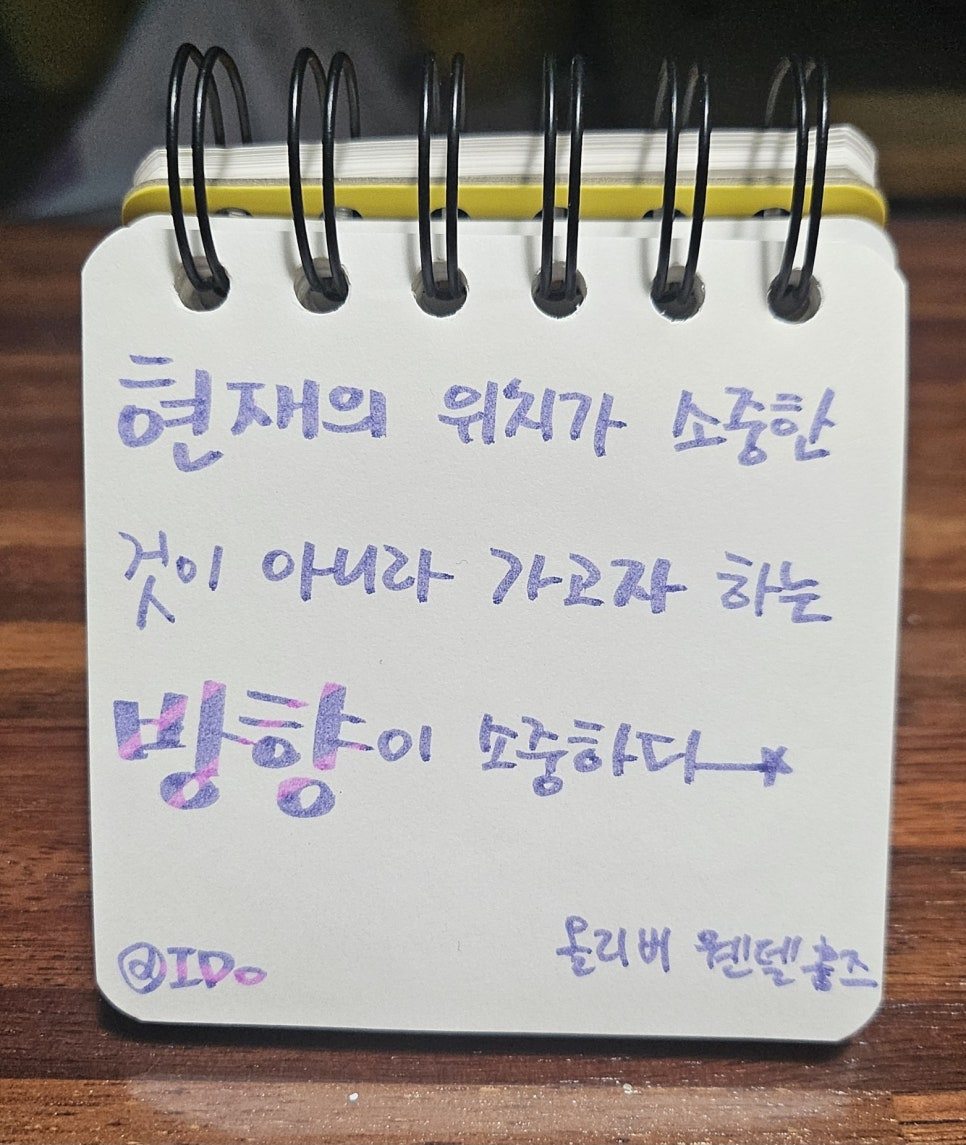 현재의 위치가 소중한
것이 아니라 가고자 하는
방향이 소중하다
@IDo
올리버 웬델홈즈